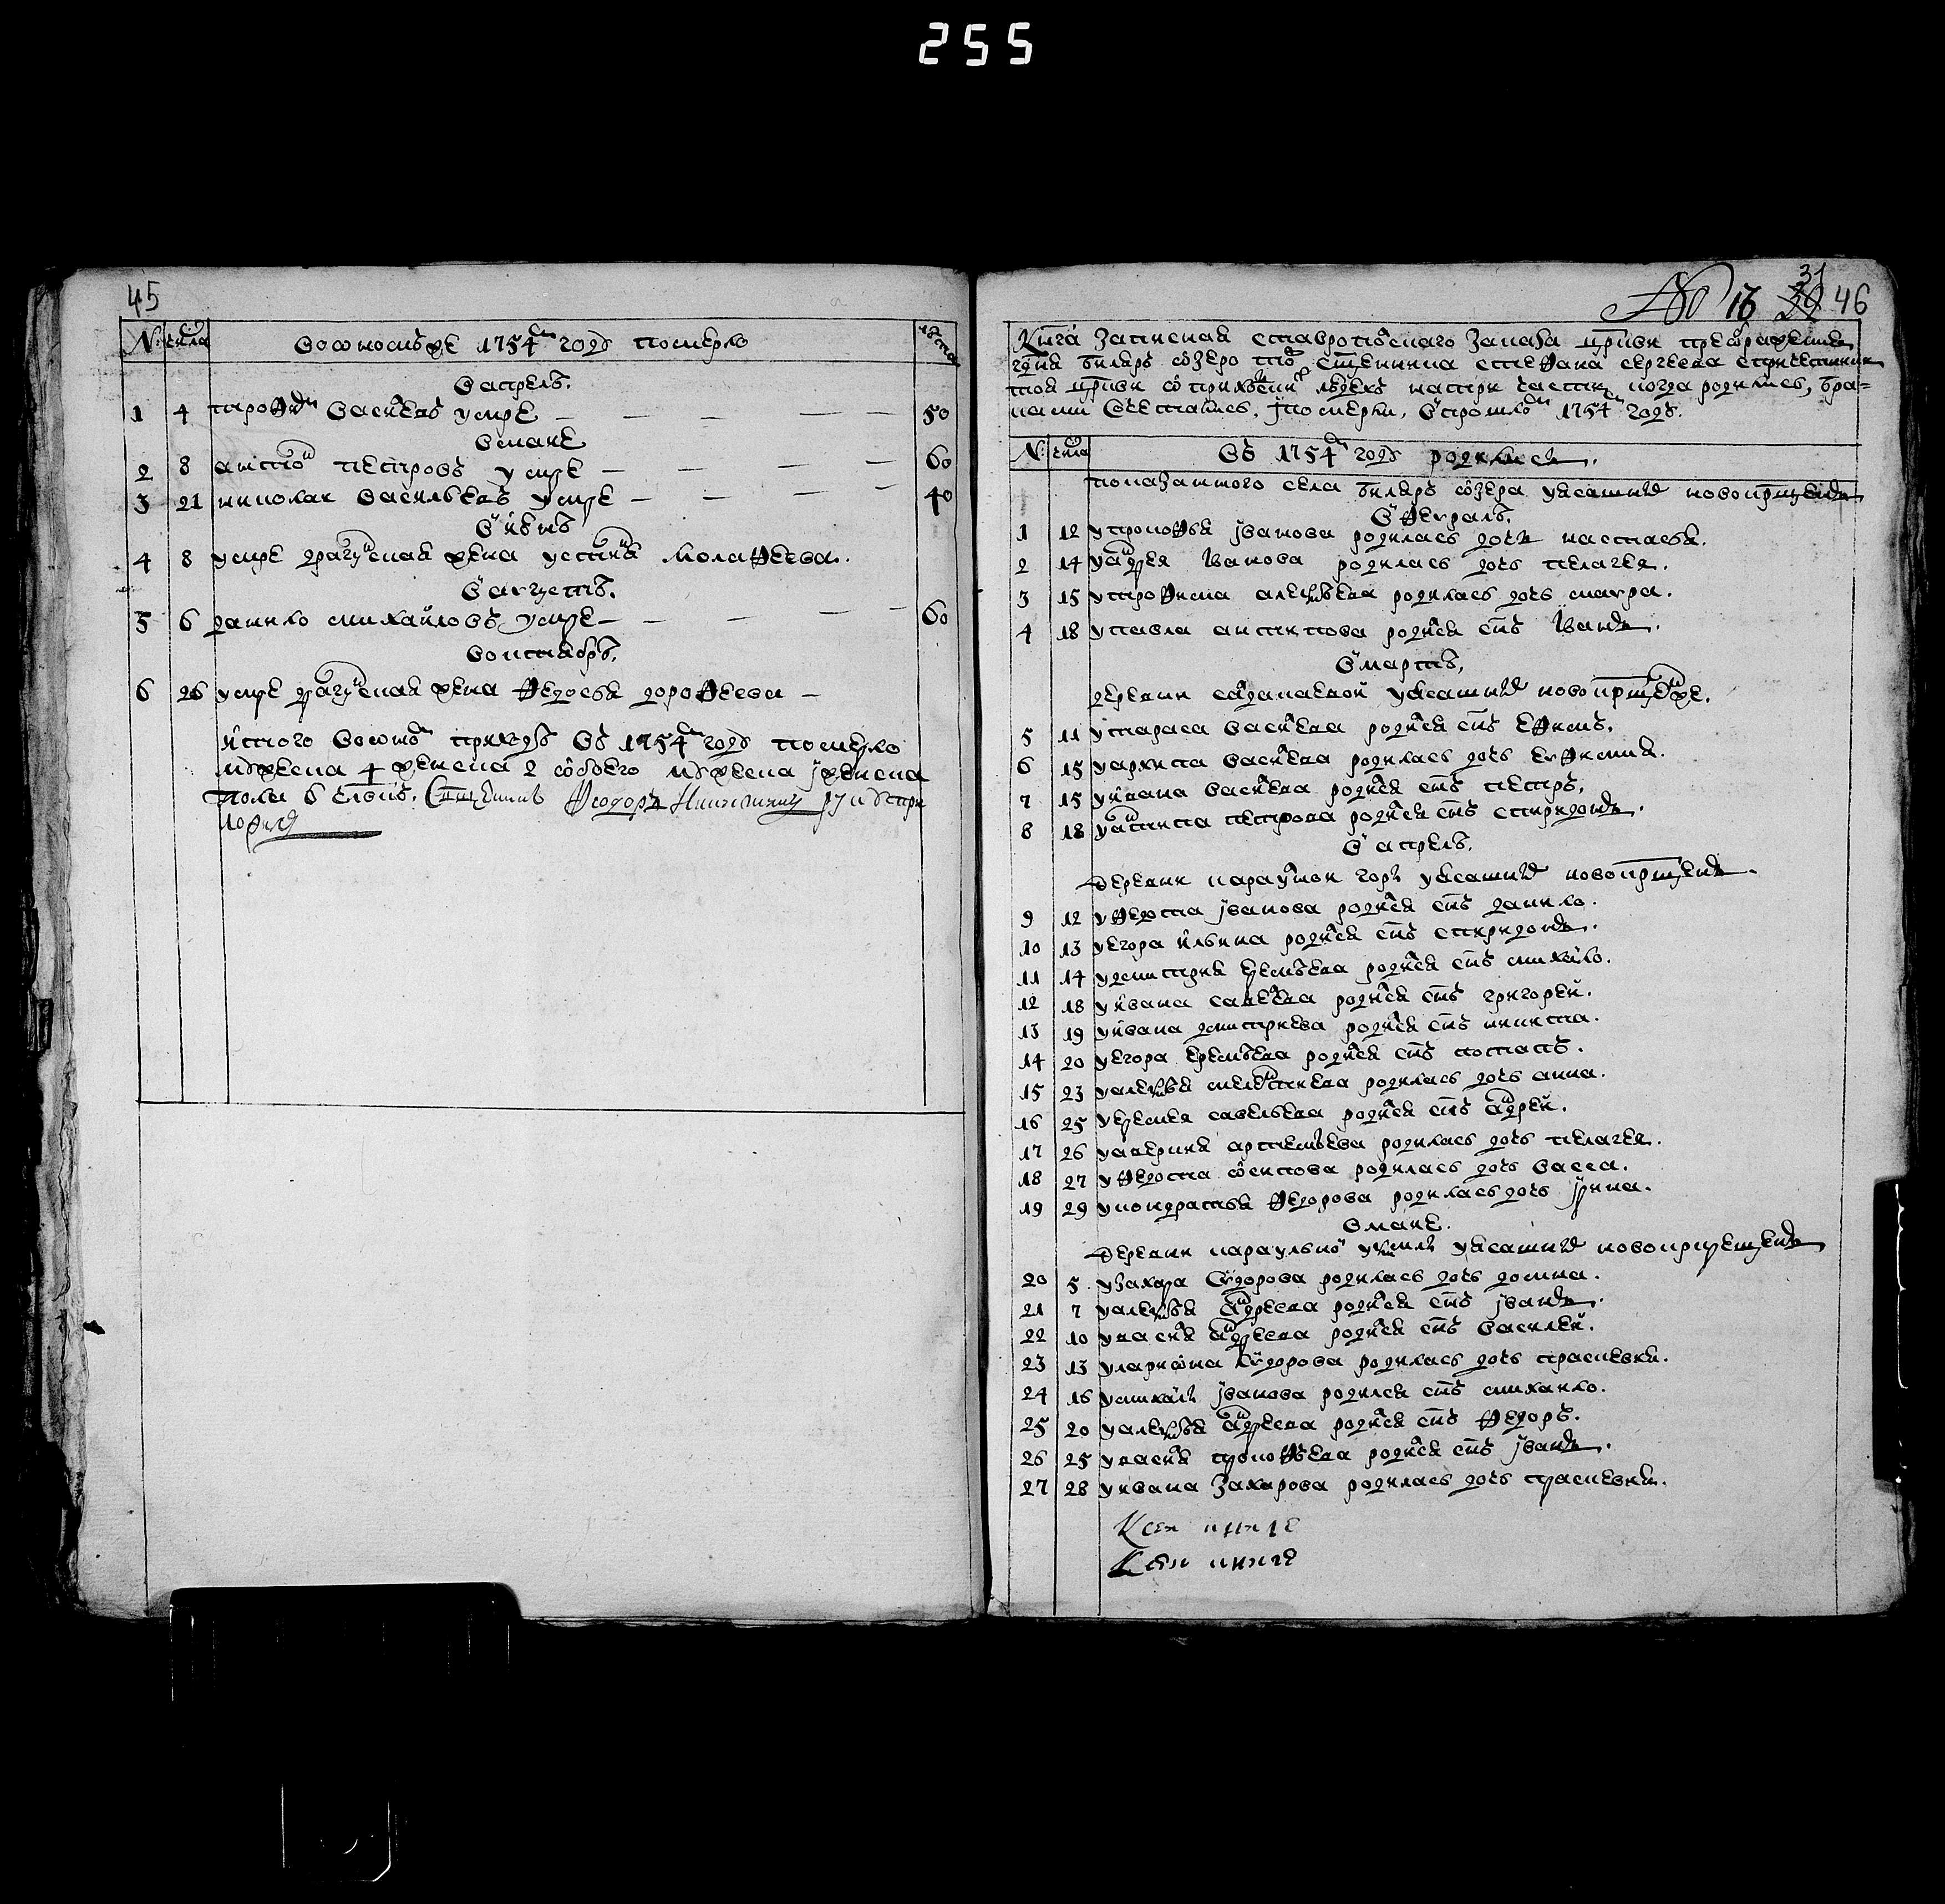 255
45
№: числа Во оном же 1754м году померло лѣта
В апрелѣ.
1 4 трофим Василевъ умре 50
В маие
2 8 антон петровъ умре 60
3 21 николаи Васильевъ умре 40
В июнѣ
4 8 умре драгунская жена устиния Малафеева.
В августѣ.
5 6 данило михаиловъ умре 60
В октябрѣ.
6 26 умре драгунская жена Федосья дорофеева
Итого во ономъ приходѣ въ 1754м году померло
мужеска 4 женска 2 обоего мужеска и женска
пола 6 елвекъ. Священникъ Феодоръ руку
приложил
№ 16 31 46
Книга записная ставропольскаго заказа церкви преображения
гдня биляръ озеро попа священника стефана сергеева с причетники
тоя церкви о приходскихъ людехъ на три части когда родилися, бра-
ками сочеталися, и померли, в прошломъ 1754м году.
№: числа Въ 1754м году родилися.
показанного села биляръ озера у ясашныхъ новокрещенъ
В феврале.
1 12 у прокофья иванова родилась дочь настасья.
2 14 у андрея Иванова родилась дочь пелагея.
3 15 у трофима алексѣева родилась дочь мавра.
4 18 у павла антипова родился сынъ Иванъ.
В мартѣ,
деревни у ясашныхъ новокрещенъ же.
5 11 у тараса василева родился сынъ ефимъ.
6 15 у архипа василева родилась дочь евфимия.
7 15 у ивана василева родился сынъ петръ,
8 18 у антипа петрова родился сынъ спиридонъ.
В апрелѣ,
Деревни караулнои горы у ясашныхъ новокрещенъ.
9 12 у федота иванова родился сынъ данило.
10 13 у егора ильина родился сынъ спиридонъ.
11 14 у дмитрия еремѣева родился сынъ михаило.
12 18 у ивана савелева родился сынъ григореи.
13 19 у ивана дмитриева родился сынъ никита.
14 20 у егора еремѣева родился сынъ потапъ.
15 23 у алексѣя родилась дочь анна.
16 25 у еремея савельева родился сынъ андреи.
17 26 у аверина артемьева родилась дочь пелагея.
18 27 у федота осипова родилась дочь васса.
19 29 у кондратья федорова родилась дочь ирина.
В маие.
Деревни караульнои у ясашныхъ новокрещенъ
20 5 у захара Сидорова родилась дочь домна.
21 7 у алексѣя андреева родился сынъ иванъ.
22 10 у василя андреева родился сынъ василеи.
23 13 у лариона Сидорова родилась дочь прасковья.
24 16 у михаила иванова родился сынъ михаило.
25 20 у алексѣя андреева родился сынъ федоръ.
26 25 у василя прокофьева родился сынъ иванъ.
27 28 у ивана захарова родилась дочь прасковья.
К сеи книге
К сеи книге